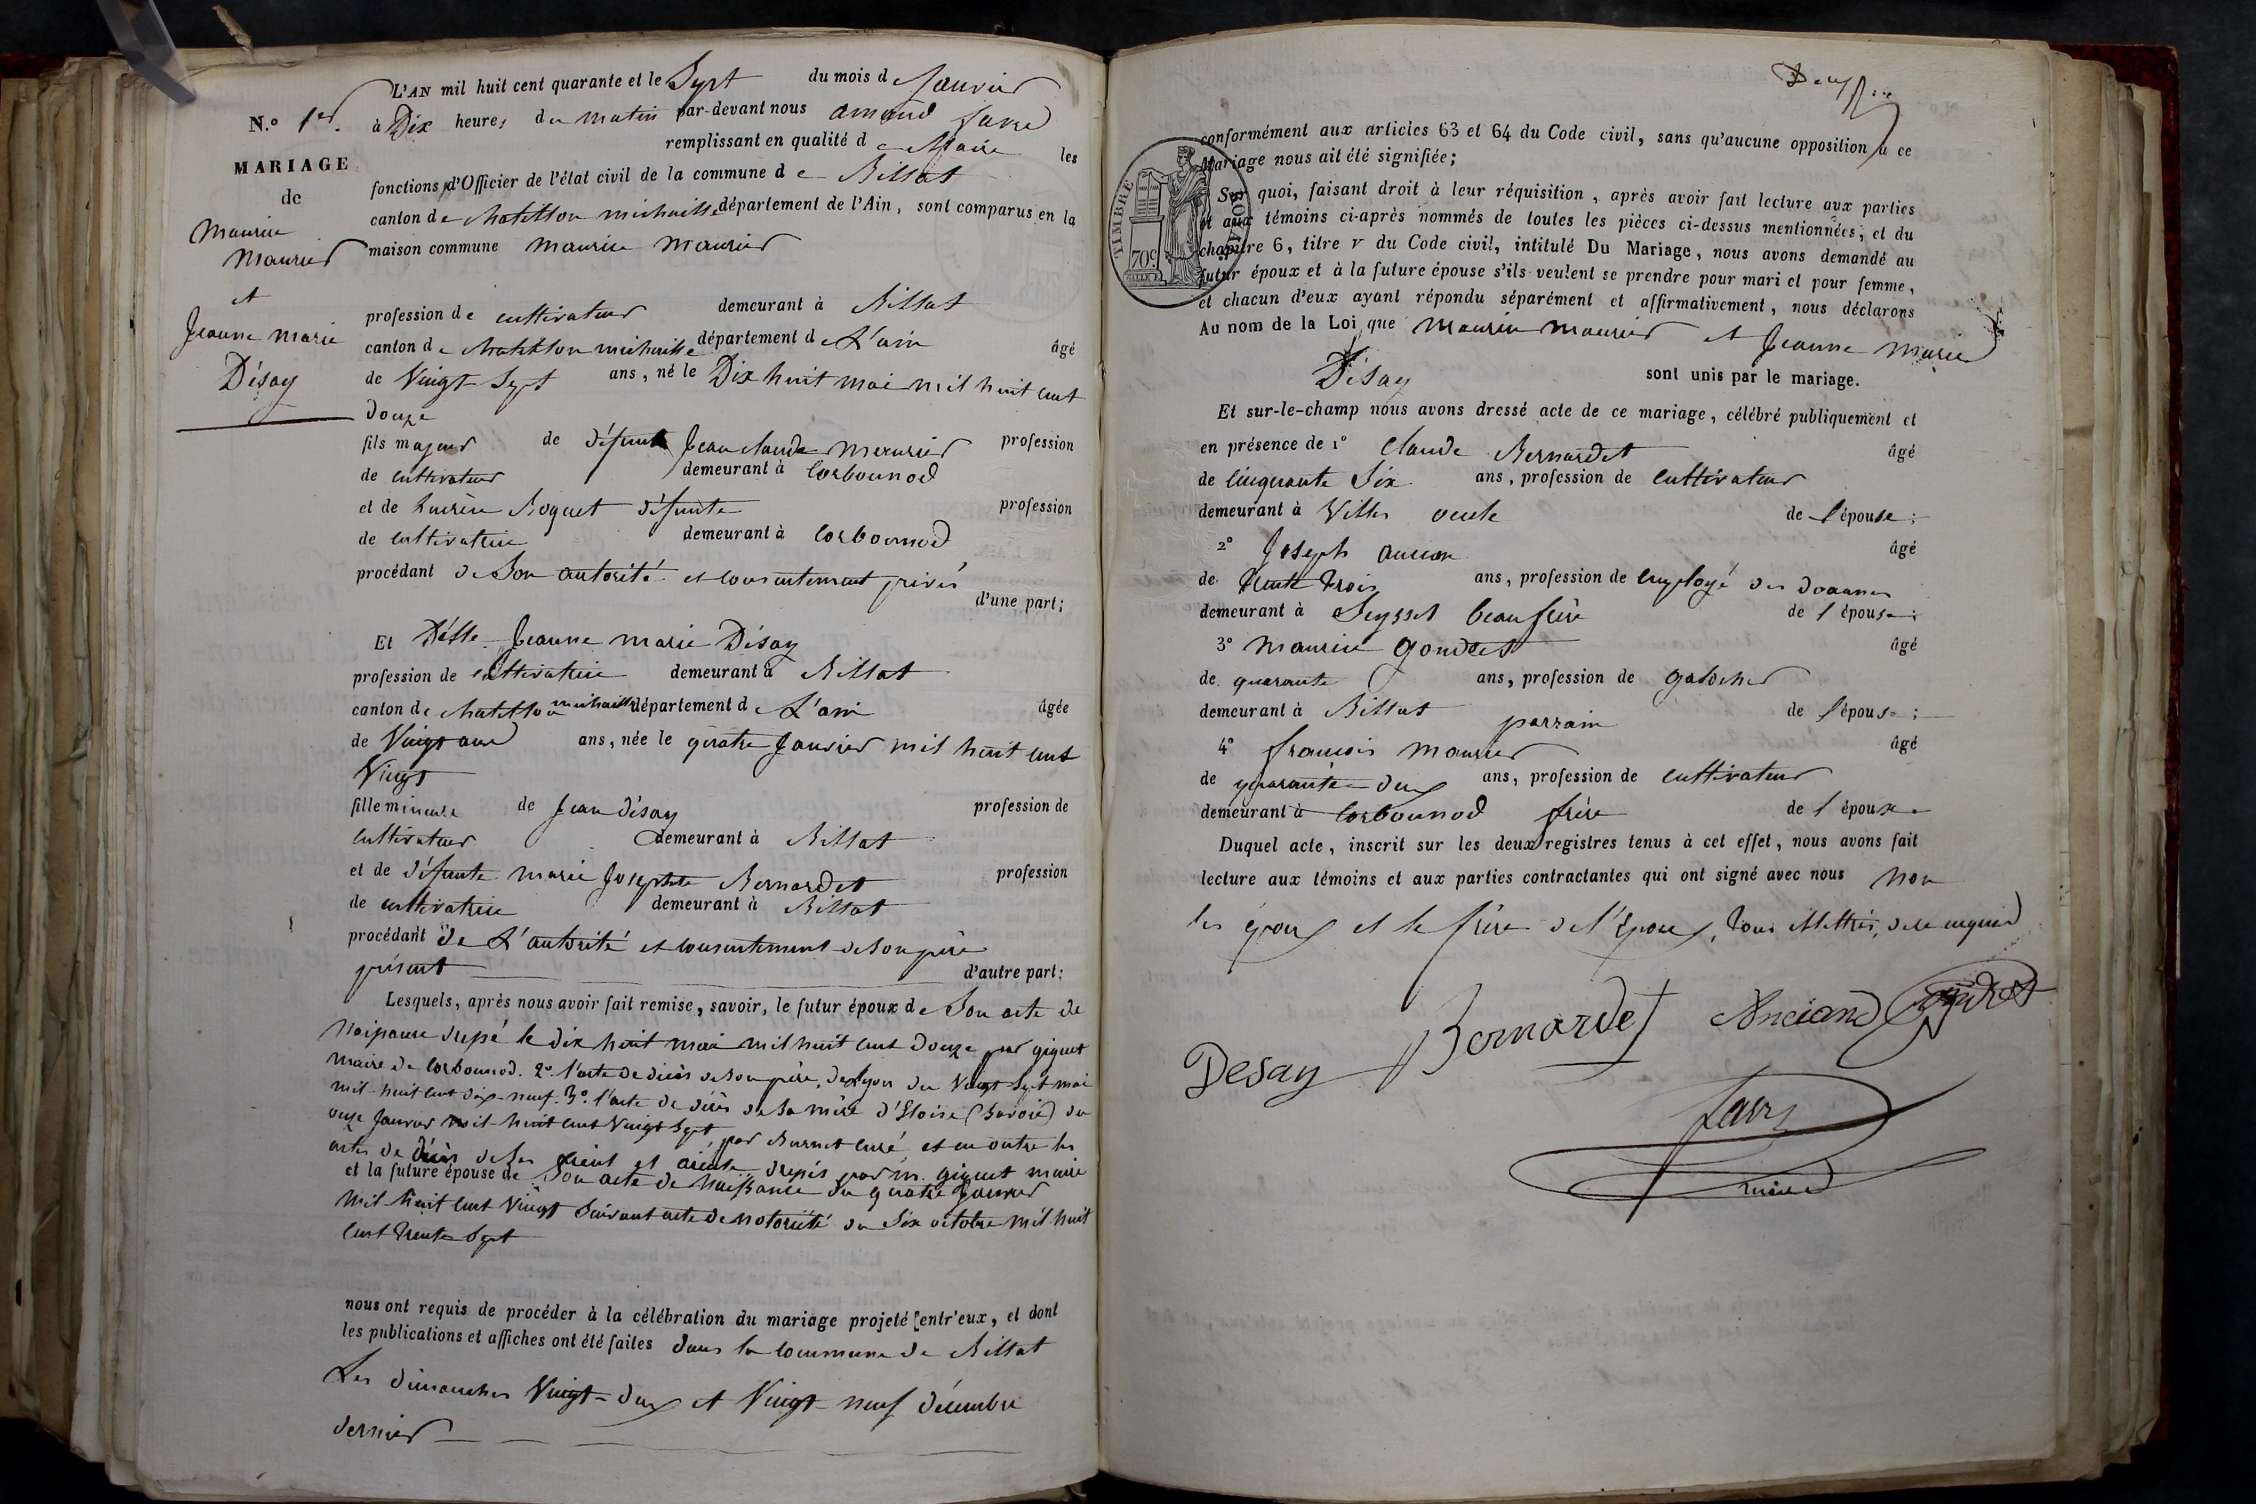 N.° 1er.
MARIAGE
de
Maurice
Maurier
et
Jeanne Marie
Désay
L'AN mil huit cent quarante et le Sept du mois de Janvier
à Dix heures du matin par-devant nous amand favre
remplissant en qualité de Maire les
fonctions d'Officier de l'état civil de la commune de Billiat
canton de Chatillon michaille département de l'Ain, sont comparus en la
maison commune Maurice Maurier
profession de cultivateur demeurant à Billiat
canton de Chatillon michaille département de L'ain âgé
de Vingt Sept ans, né le Dix huit mai mil huit cent
douze
fils majeur de défunt Jean claude Maurier profession
de cultivateur demeurant à Corbounod
et de Roguet défunte profession
de cultivatrice demeurant à Corbounod
procédant de Son autorité et consentement privés
d'une part;
Et Délle Jeanne marie Désay
profession de cultivatrice demeurant à Billiat
canton de Chatillon michaille département de L'ain âgée
de Vingt ans, née le quatre Janvier mil huit cent
Vingt
fille mineure de Jean Désay profession de
cultivateur demeurant à Billiat
et de défunte marie Josephte Bernardet profession
de cultivatrice demeurant à Billiat
procédant de L'autorité et consentement de son père
présent d'autre part:
Lesquels, après nous avoir fait remise, savoir, le futur époux de Son acte de
Naissance dressé le dix huit mai mil huit cent douze par giguet
maire de Corbounod. 2° l'acte de décès de son père, de Lyon du Vingt Sept mai
mil-huit cent dix-neuf. 3° l'acte de décès de sa mère d'Eloise (Savoie) du
onze Janvier mil-huit cent Vingt Sept par Burnet curé et en outre les
actes de décès de ses dressés par m. giguet maire
et la future épouse de Son acte de Naissance du quatre Janvier
mil huit cent Vingt Suivant acte de notoriété du Six octobre mil huit
cent trente Sept
nous ont requis de procéder à la célébration du mariage projeté entr'eux, et dont
les publications et affiches ont été faites dans la commune de Billiat
Les dimanches Vingt-deux et Vingt-neuf décembre
dernier
conformément aux articles 63 et 64 du Code civil, sans qu'aucune opposition à ce
Mariage nous ait été signifiée;
TIMBRE ROYAL
70c
Sur quoi, faisant droit à leur réquisition, après avoir fait lecture aux parties
et aux témoins ci-après nommés de toutes les pièces ci-dessus mentionnées, et du
chapitre 6, titre v du Code civil, intitulé Du Mariage, nous avons demandé au
futur époux et à la future épouse s'ils veulent se prendre pour mari et pour femme,
et chacun d'eux ayant répondu séparément et affirmativement, nous déclarons
Au nom de la Loi que Maurice Maurier et Jeanne Marie
Désay sont unis par le mariage.
Et sur-le-champ nous avons dressé acte de ce mariage, célébré publiquement et
en présence de 1° Claude Bernardet âgé
de Cinquante Six ans, profession de cultivateur
demeurant à Villes oncle de l'épouse;
2° Joseph âgé
de trente trois ans, profession de Employé des Douannes
demeurant à Seyssel beaufrère de l'épouse;
3° Maurice Gondret âgé
de quarante ans, profession de galocher
demeurant à Billiat parrain de l'épouse;
4° françois Maurier âgé
de quarante-deux ans, profession de cultivateur
demeurant à Corbounod frère de l'époux.
Duquel acte, inscrit sur les deux registres tenus à cet effet, nous avons fait
lecture aux témoins et aux parties contractantes qui ont signé avec nous Non
les époux et le frère de l'Epoux, tous illettrés, de ce enquis
Desay Bernardet Anciand Gondret
favre
maire